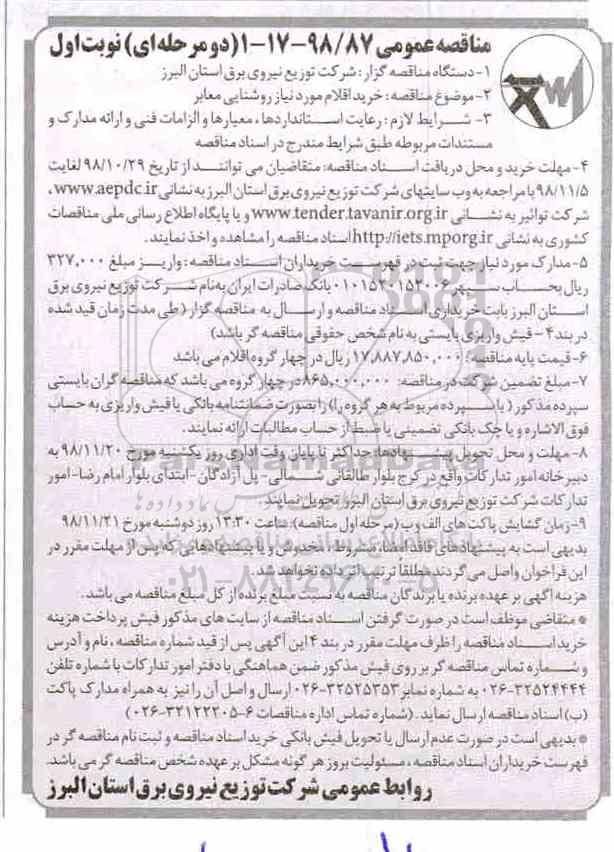 مناقصه عمومی ۹۸/۸۷-۱۷-۱ (دو مرحله ای) نوبت اول
۱- دستگاه مناقصه گزار: شرکت توزیع نیروی برق استان البرز
۲- موضوع مناقصه: خرید اقلام مورد نیاز روشنایی معابر
۳- شرایط لازم: رعایت استانداردها، معیارها و الزامات فنی و ارائه مدارک و
مستندات مربوطه طبق شرایط مندرج در اسناد مناقصه
۴- مهلت خرید و محل دریافت اسناد مناقصه: متقاضیان می توانند از تاریخ ۹۸/۱۰/۲۹ لغایت
۹۸/۱۱/۵ با مراجعه به وب سایتهای شرکت توزیع نیروی برق استان البرز به نشانی www.aepdc.ir،
شرکت توانیر به نشانی www.tender.tavanir.org.ir و یا پایگاه اطلاع رسانی ملی مناقصات
کشوری به نشانی http://iets.mporg.ir اسناد مناقصه را مشاهده و اخذ نمایند.
۵- مدارک مورد نیاز جهت ثبت در فهرست خریداران اسناد مناقصه: واریز مبلغ ۳۲۷,۰۰۰
ریال بحساب سپهر ۰۱۰۱۵۲۰۱۵۲۰۰۶ بانک صادرات ایران به نام شرکت توزیع نیروی برق
استان البرز بابت خریداری اسناد مناقصه و ارسال به مناقصه گزار (طی مدت زمان قید شده
در بند ۴- فیش واریزی بایستی به نام شخص حقوقی مناقصه گر باشد)
۶- قیمت پایه مناقصه: ۱۷,۸۸۷,۸۵۰,۰۰۰ ریال در چهار گروه اقلام می باشد
۷- مبلغ تضمین شرکت در مناقصه: ۸۶۵,۰۰۰,۰۰۰ در چهار گروه می باشد که مناقصه گران بایستی
سپرده مذکور (یا سپرده مربوط به هر گروه را) بصورت ضمانتنامه بانکی یا فیش واریزی به حساب
فوق الاشاره و یا چک بانکی تضمینی یا ضبط از حساب مطالبات ارائه نمایند.
۸- مهلت و محل تحویل پیشنهادها: حداکثر تا پایان وقت اداری روز یکشنبه مورخ ۹۸/۱۱/۲۰ به
دبیرخانه امور تدارکات واقع در کرج بلوار طالقانی شمالی- پل آزادگان- ابتدای بلوار امام رضا- امور
تدارکات شرکت توزیع نیروی برق استان البرز تحویل نمایند
۹- زمان گشایش پاکت های الف و ب (مرحله اول مناقصه): ساعت ۱۳:۳۰ روز دوشنبه مورخ ۹۸/۱۱/۲۱
بدیهی است به پیشنهادهای فاقد امضاء، مشروط، مخدوش و یا پیشنهادهایی که پس از مهلت مقرر در
این فراخوان واصل می گردند مطلقا ترتیب اثر داده نخواهد شد.
هزینه آگهی بر عهده برنده یا برندگان مناقصه به نسبت مبلغ برنده از کل مبلغ مناقصه می باشد.
* متقاضی موظف است در صورت گرفتن اسناد مناقصه از سایت های مذکور فیش پرداخت هزینه
خرید اسناد مناقصه را ظرف مهلت مقرر در بند ۴ این آگهی پس از قید شماره مناقصه، نام و آدرس
و شماره تماس مناقصه گر بر روی فیش مذکور ضمن هماهنگی با دفتر امور تدارکات با شماره تلفن
۰۲۶-۳۲۵۲۴۴۴۴ به شماره نمابر ۰۲۶-۳۲۵۲۵۳۵۳ ارسال و اصل آن را نیز به همراه مدارک پاکت
(ب) اسناد مناقصه ارسال نماید. (شماره تماس اداره مناقصات ۶-۰۲۶-۳۲۱۲۲۲۰۵)
* بدیهی است در صورت عدم ارسال یا تحویل فیش بانکی خرید اسناد مناقصه و ثبت نام مناقصه گر در
فهرست خریداران اسناد مناقصه، مسئولیت بروز هر گونه مشکل بر عهده شخص مناقصه گر می باشد.
روابط عمومی شرکت توزیع نیروی برق استان البرز